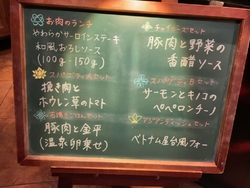 お肉のランチ
やわらかサーロインステーキ
和風おろしソース
(100g・150g)
スパゲッティAセット
挽き肉と
ホウレン草のトマト
石焼きごはんセット
豚肉と金平
(温泉卵乗せ)
豚肉と野菜の
香醋ソース
スパゲッティBセット
サーモンとキノコの
ペペロンチーノ
アジアンディッシュセット
ベトナム屋台風フォー